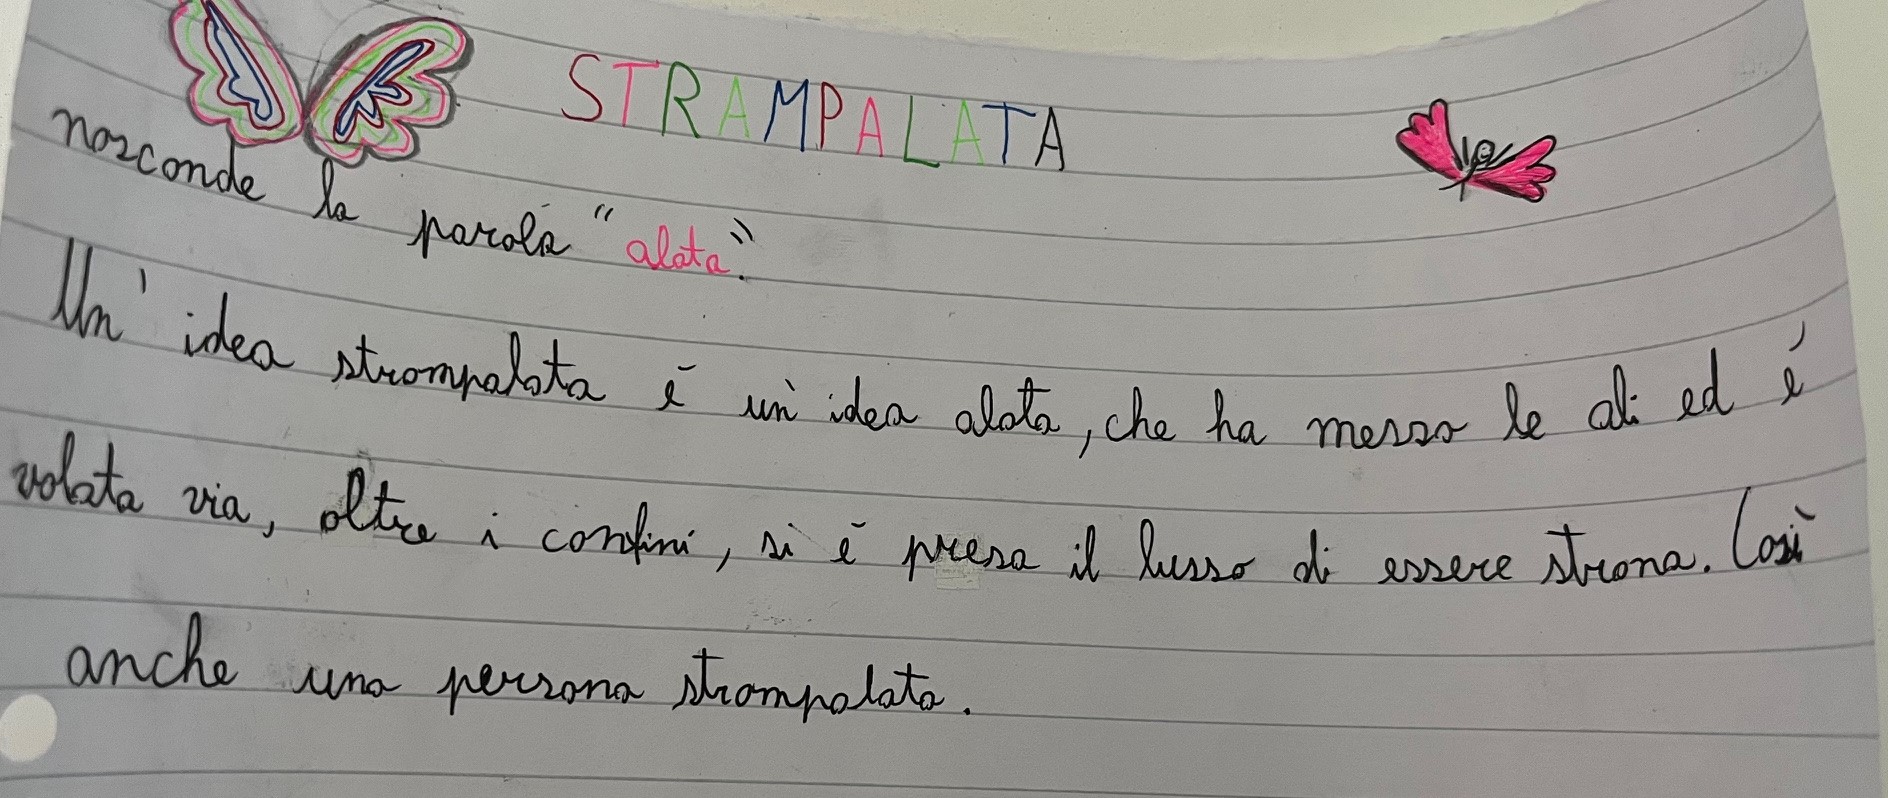 STRAMPALATA
nasconde la parola "alata".
Un' idea strampalata è un' idea alata, che ha messo le ali ed è
volata via, oltre i confini, si è presa il lusso di essere strana. Così
anche una persona strampalata.